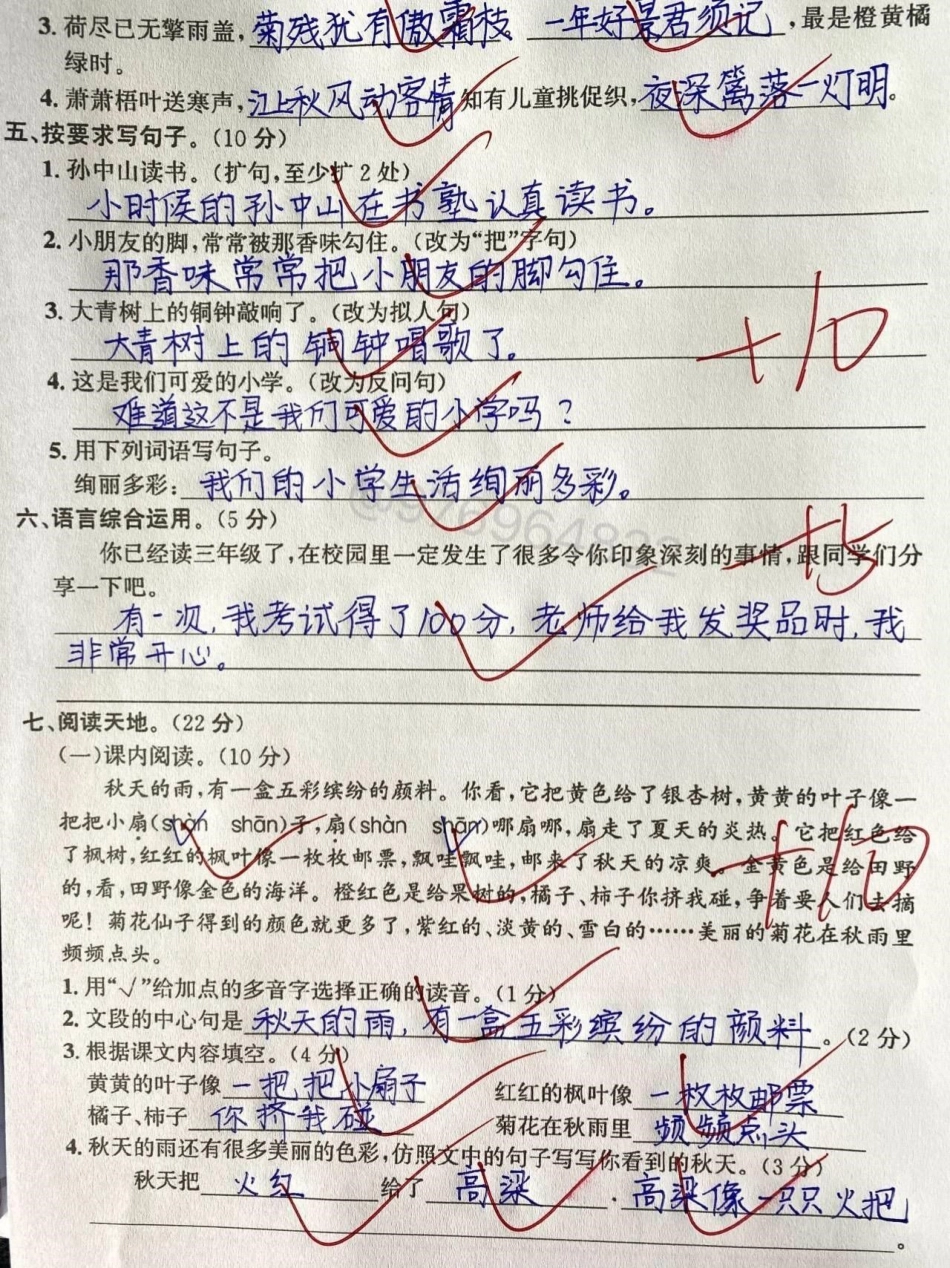 3. 荷尽已无擎雨盖,菊残犹有傲霜枝 一年好景君须记,最是橙黄橘
绿时。
4. 萧萧梧叶送寒声,江上秋风动客情知有儿童挑促织,夜深篱落一灯明。
五、按要求写句子。(10 分)
1. 孙中山读书。(扩句,至少扩 2 处)
小时候的孙中山在书塾认真读书。
2. 小朋友的脚,常常被那香味勾住。(改为“把”字句)
那香味常常把小朋友的脚勾住。
3. 大青树上的铜钟敲响了。(改为拟人句)
大青树上的铜钟唱歌了。
+10
4. 这是我们可爱的小学。(改为反问句)
难道这不是我们可爱的小学吗?
5. 用下列词语写句子。
绚丽多彩:我们的小学生活绚丽多彩。
六、语言综合运用。(5 分)
+5
你已经读三年级了,在校园里一定发生了很多令你印象深刻的事情,跟同学们分
享一下吧。
有一次,我考试得了100分,老师给我发奖品时,我
非常开心。
七、阅读天地。(22 分)
(一)课内阅读。(10 分)
秋天的雨,有一盒五彩缤纷的颜料。你看,它把黄色给了银杏树,黄黄的叶子像一
把把小扇(shàn shān)子,扇(shàn shān)哪扇哪,扇走了夏天的炎热。它把红色给
了枫树,红红的枫叶像一枚枚邮票,飘哇飘哇,邮来了秋天的凉爽。金黄色是给田野
+10
的,看,田野像金色的海洋。橙红色是给果树的,橘子、柿子你挤我碰,争着要人们去摘
呢!菊花仙子得到的颜色就更多了,紫红的、淡黄的、雪白的……美丽的菊花在秋雨里
频频点头。
1. 用“√”给加点的多音字选择正确的读音。(1 分)
2. 文段的中心句是 秋天的雨,有一盒五彩缤纷的颜料。(2 分)
3. 根据课文内容填空。(4 分)
黄黄的叶子像 一把把小扇子 红红的枫叶像 一枚枚邮票
橘子、柿子 你挤我碰 菊花在秋雨里 频频点头
4. 秋天的雨还有很多美丽的色彩,仿照文中的句子写写你看到的秋天。(3 分)
秋天把 火红 给了 高粱 . 高粱像一只只火把
。